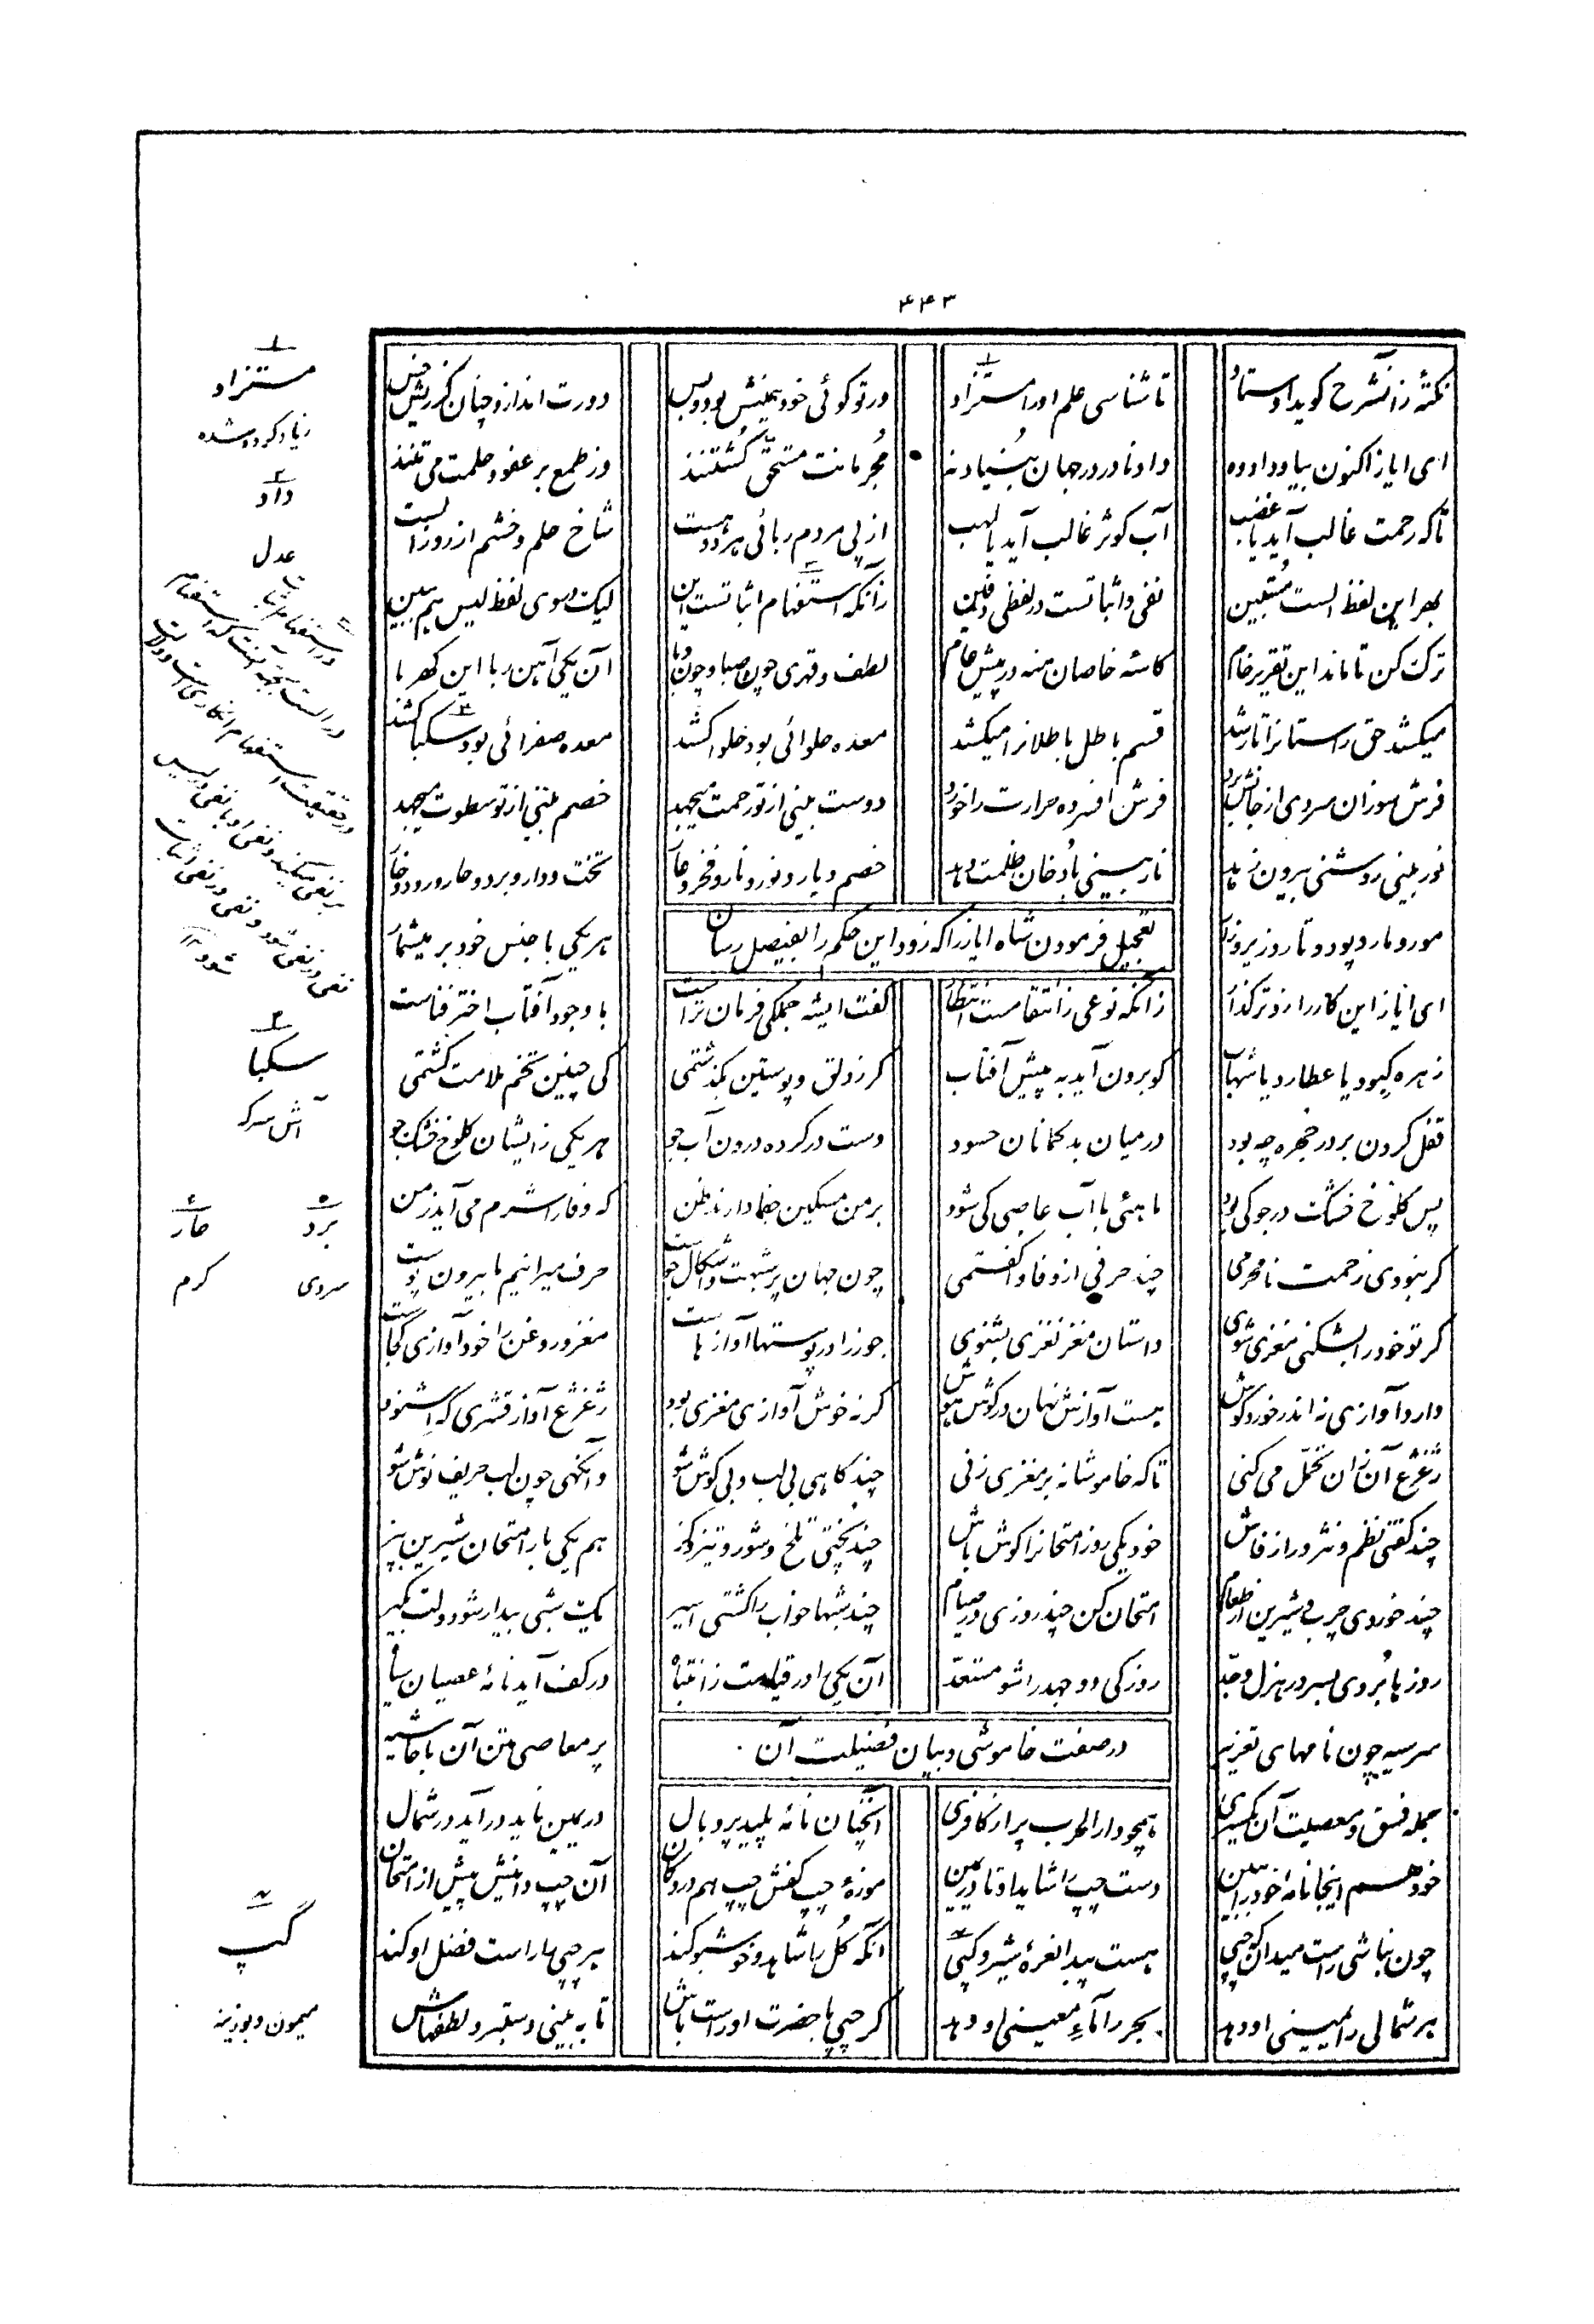 ۴۴۳
نکتهٔ زان شرح گوید اوستاد	تا شناسی علم او را مستزاد	ور تو گوئی خود همینش بود و بس	دورت اندازد چنان کز ریش خس
ای ایاز اکنون بیا و داد ده	داد نادر در جهان بنیاد نه	مجرمانت مستحق کشتنند	وز طمع بر عفو و حلمت می تنند
تا که رحمت غالب آید یا غضب	آب کوثر غالب آید یا لهب	از پی مردم ربائی هر دو هست	شاخ حلم و خشم از روز الست
بهر این لفظ الست مستبین	نفی و اثباتست در لفظی دفین	زآنکه استفهام اثباتست این	لیک در وی لفظ لیس هم ببین
ترک کن تا ماند این تقریر خام	کاسهٔ خاصان منه در پیش عام	لطف و قهری چون صبا و چون وبا	آن یکی آهن ربا این کهربا
میکشد حق راستانرا تا رشد	قسم باطل باطلانرا میکشد	معده حلوائی بود حلوا کشد	معده صفرائی بود سکبا کشد
فرش سوزان سردی از جالس برد	فرش افسرده حرارت را خورد	دوست بینی از تو رحمت میجهد	خصم بینی از تو سطوت میجهد
نور بینی روشنی بیرون زهد	نار بینی با دخان ظلمت دهد	خصم و یار و نور و نار و فخر و عار	تخت و دار و برد و حار و ورد و خار
مور و مار و پود و تار و زیر و زار	هر یکی با جنس خود بر میشمار
تعجیل فرمودن شاه ایاز را که زود این حکم را بفیصل رسان
ای ایاز این کار را زوتر گذار	زآنکه نوعی ز انتقامست انتظار	گفت ای شه جملگی فرمان تراست	با وجود آفتاب اختر فناست
زهره کبود یا عطارد یا شهاب	کو برون آید به پیش آفتاب	گر ز دلق و پوستین بگذشتمی	کی چنین تخم ملامت کشتمی
قفل کردن بر در حجره چه بود	در میان بدگمانان حسود	دست در کرده درون آب جو	هر یکی زایشان کلوخ خشک جو
پس کلوخ خشک در جو کی بود	ماهئی با آب عاصی کی شود	بر من مسکین جفا دارند ظن	که وفا را شرم می آید ز من
گر نبودی زحمت نامحرمی	چند حرفی از وفا واگفتمی	چون جهان پر شبهت و اشکال جوست	حرف میرانیم ما بیرون پوست
گر تو خود را بشکنی مغزی شوی	داستان مغز نغزی بشنوی	جوز را در پوستها آوازهاست	مغز و روغن را خود آوازی کجاست
دارد آوازی نه اندر خورد گوش	هست آوازش نهان در گوش هوش	گر نه خوش آوازی مغزی بود	ژغژغ آواز قشری که شنود
ژغژغ آن زان تحمل می کنی	تا که خاموشانه بر مغزی زنی	چند گاهی بی لب و بی گوش شو	وآنگهی چون لب حریف نوش شو
چند گفتی نظم و نثر و راز فاش	خود یکی روز امتحانرا گوش باش	چند پختی تلخ و شور و تیز و گز	هم یکی بار امتحان شیرین بپز
چند خوردی چرب و شیرین از طعام	امتحان کن چند روزی در صیام	چند شبها خواب را گشتی اسیر	یک شبی بیدار شو دولت بگیر
روزها بردی بسر در هزل و جد	روزکی دو جهد را شو مستعد	آن یکی را در قیامت ز انتباه	در کف آید نامهٔ عصیان سیاه
در صفت خاموشی و بیان فضیلت آن
سر سیه چون نامهای تعزیه	پر معاصی متن آن با حاشیه
جمله فسق و معصیت آن یکسری	همچو دار الحرب پر از کافری	آنچنان نامه پلید پر وبال	در یمین ناید درآید در شمال
خود هم اینجا نامهٔ خود را ببین	دست چپ را شاید او یا در یمین	موزهٔ چپ کفش چپ هم در دکان	آن چپ دانیش پیش از امتحان
چون نباشی راست میدان که چپی	هست پیدا نعرهٔ شیر و کپی	آنکه گل را شاهد و خوشبو کند	هر چپی را راست فضل او کند
هر شمالی را یمینی او دهد	بحر را ماء معینی او دهد	گر چپی با حضرت او راست باش	تا به بینی دستبرد لطفهاش
۱
مستزاد
زیاد کرده شده
۲
داد
عدل
۴
سکبا
آش سرکه
۵
برد
سردی
۶
حار
گرم
۷
کپ
میمون و بوزینه